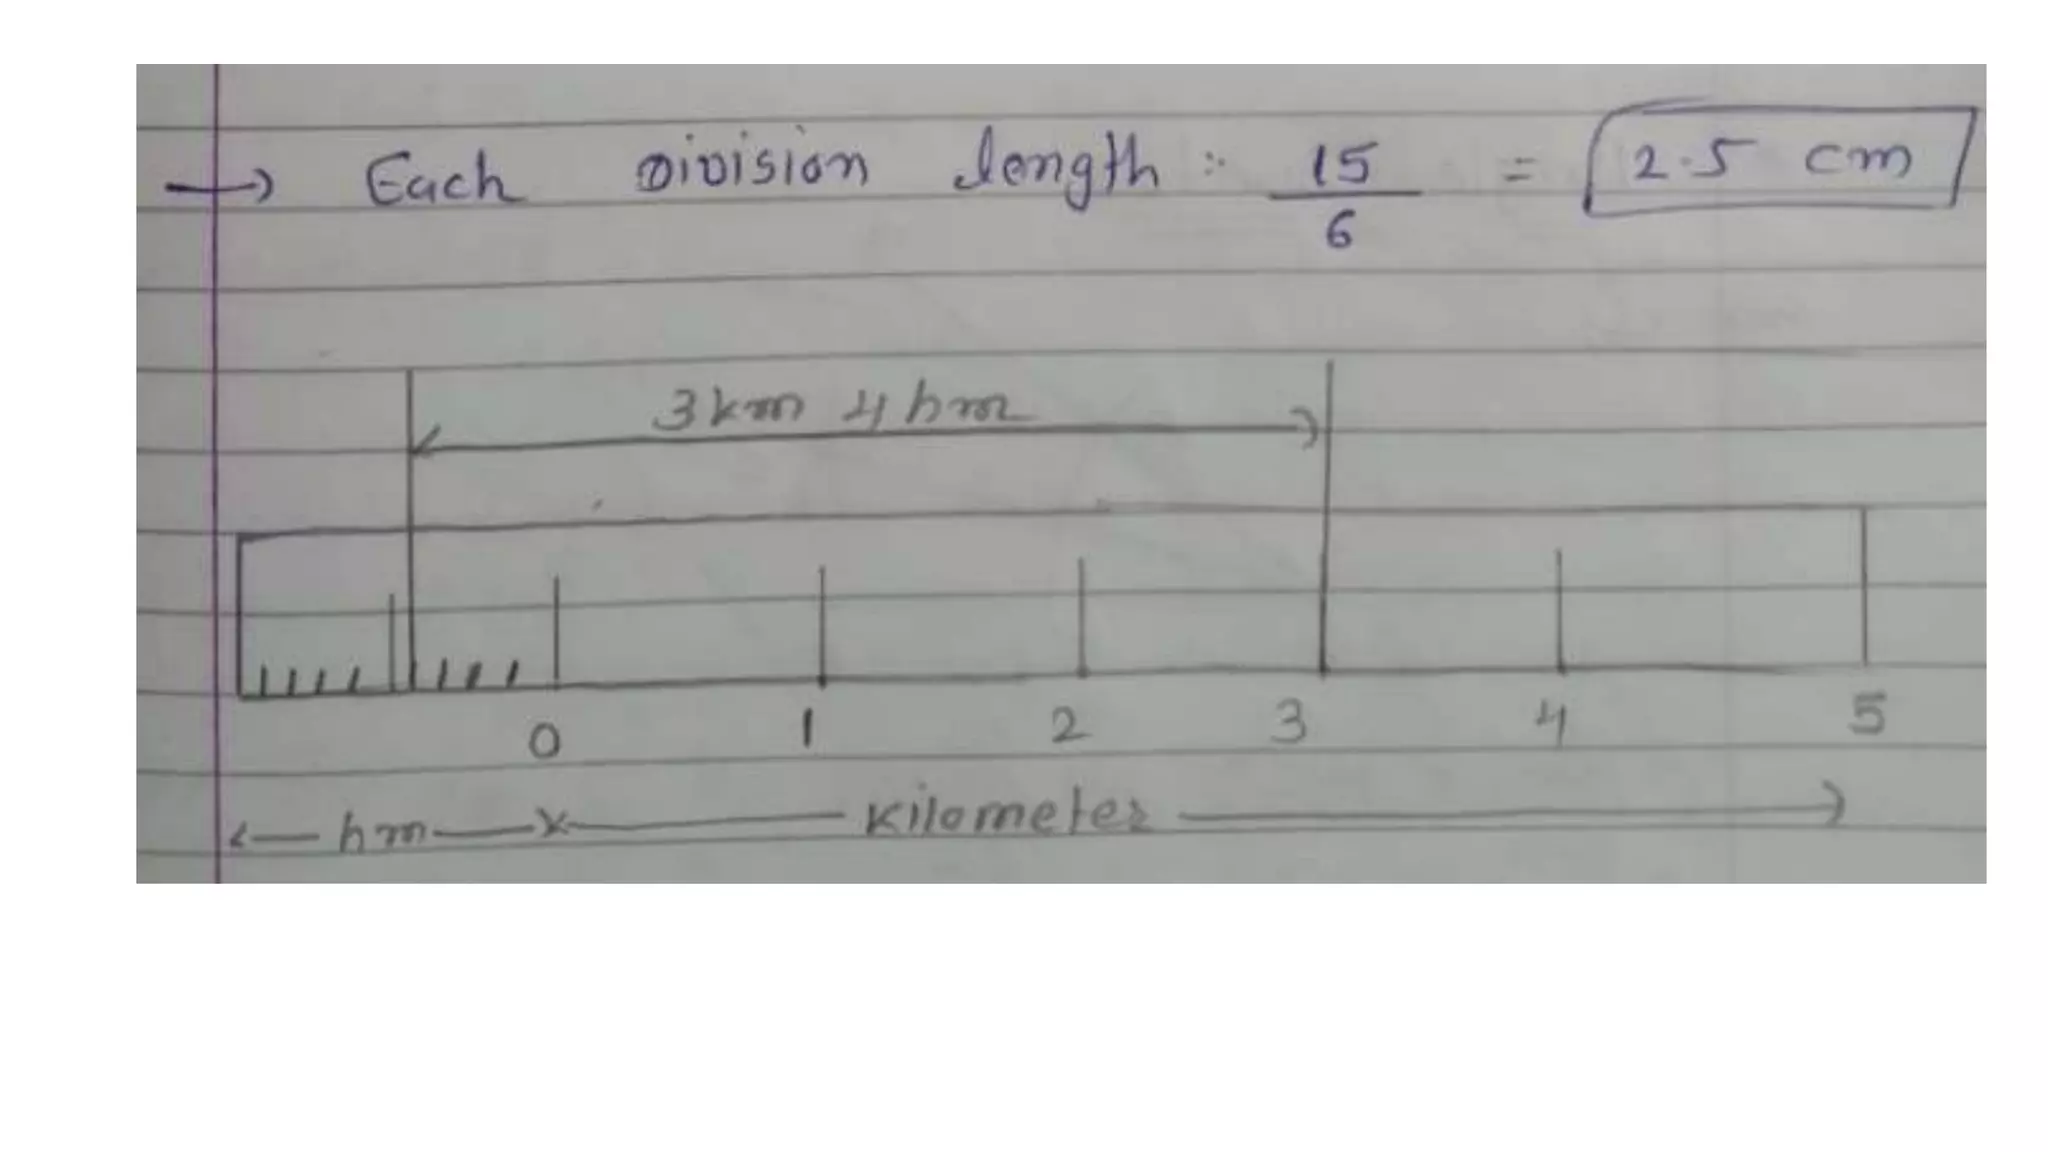 → Each Division length :- 15/6 = 2.5 cm
3km 4hm
0 1 2 3 4 5
hm kilometer